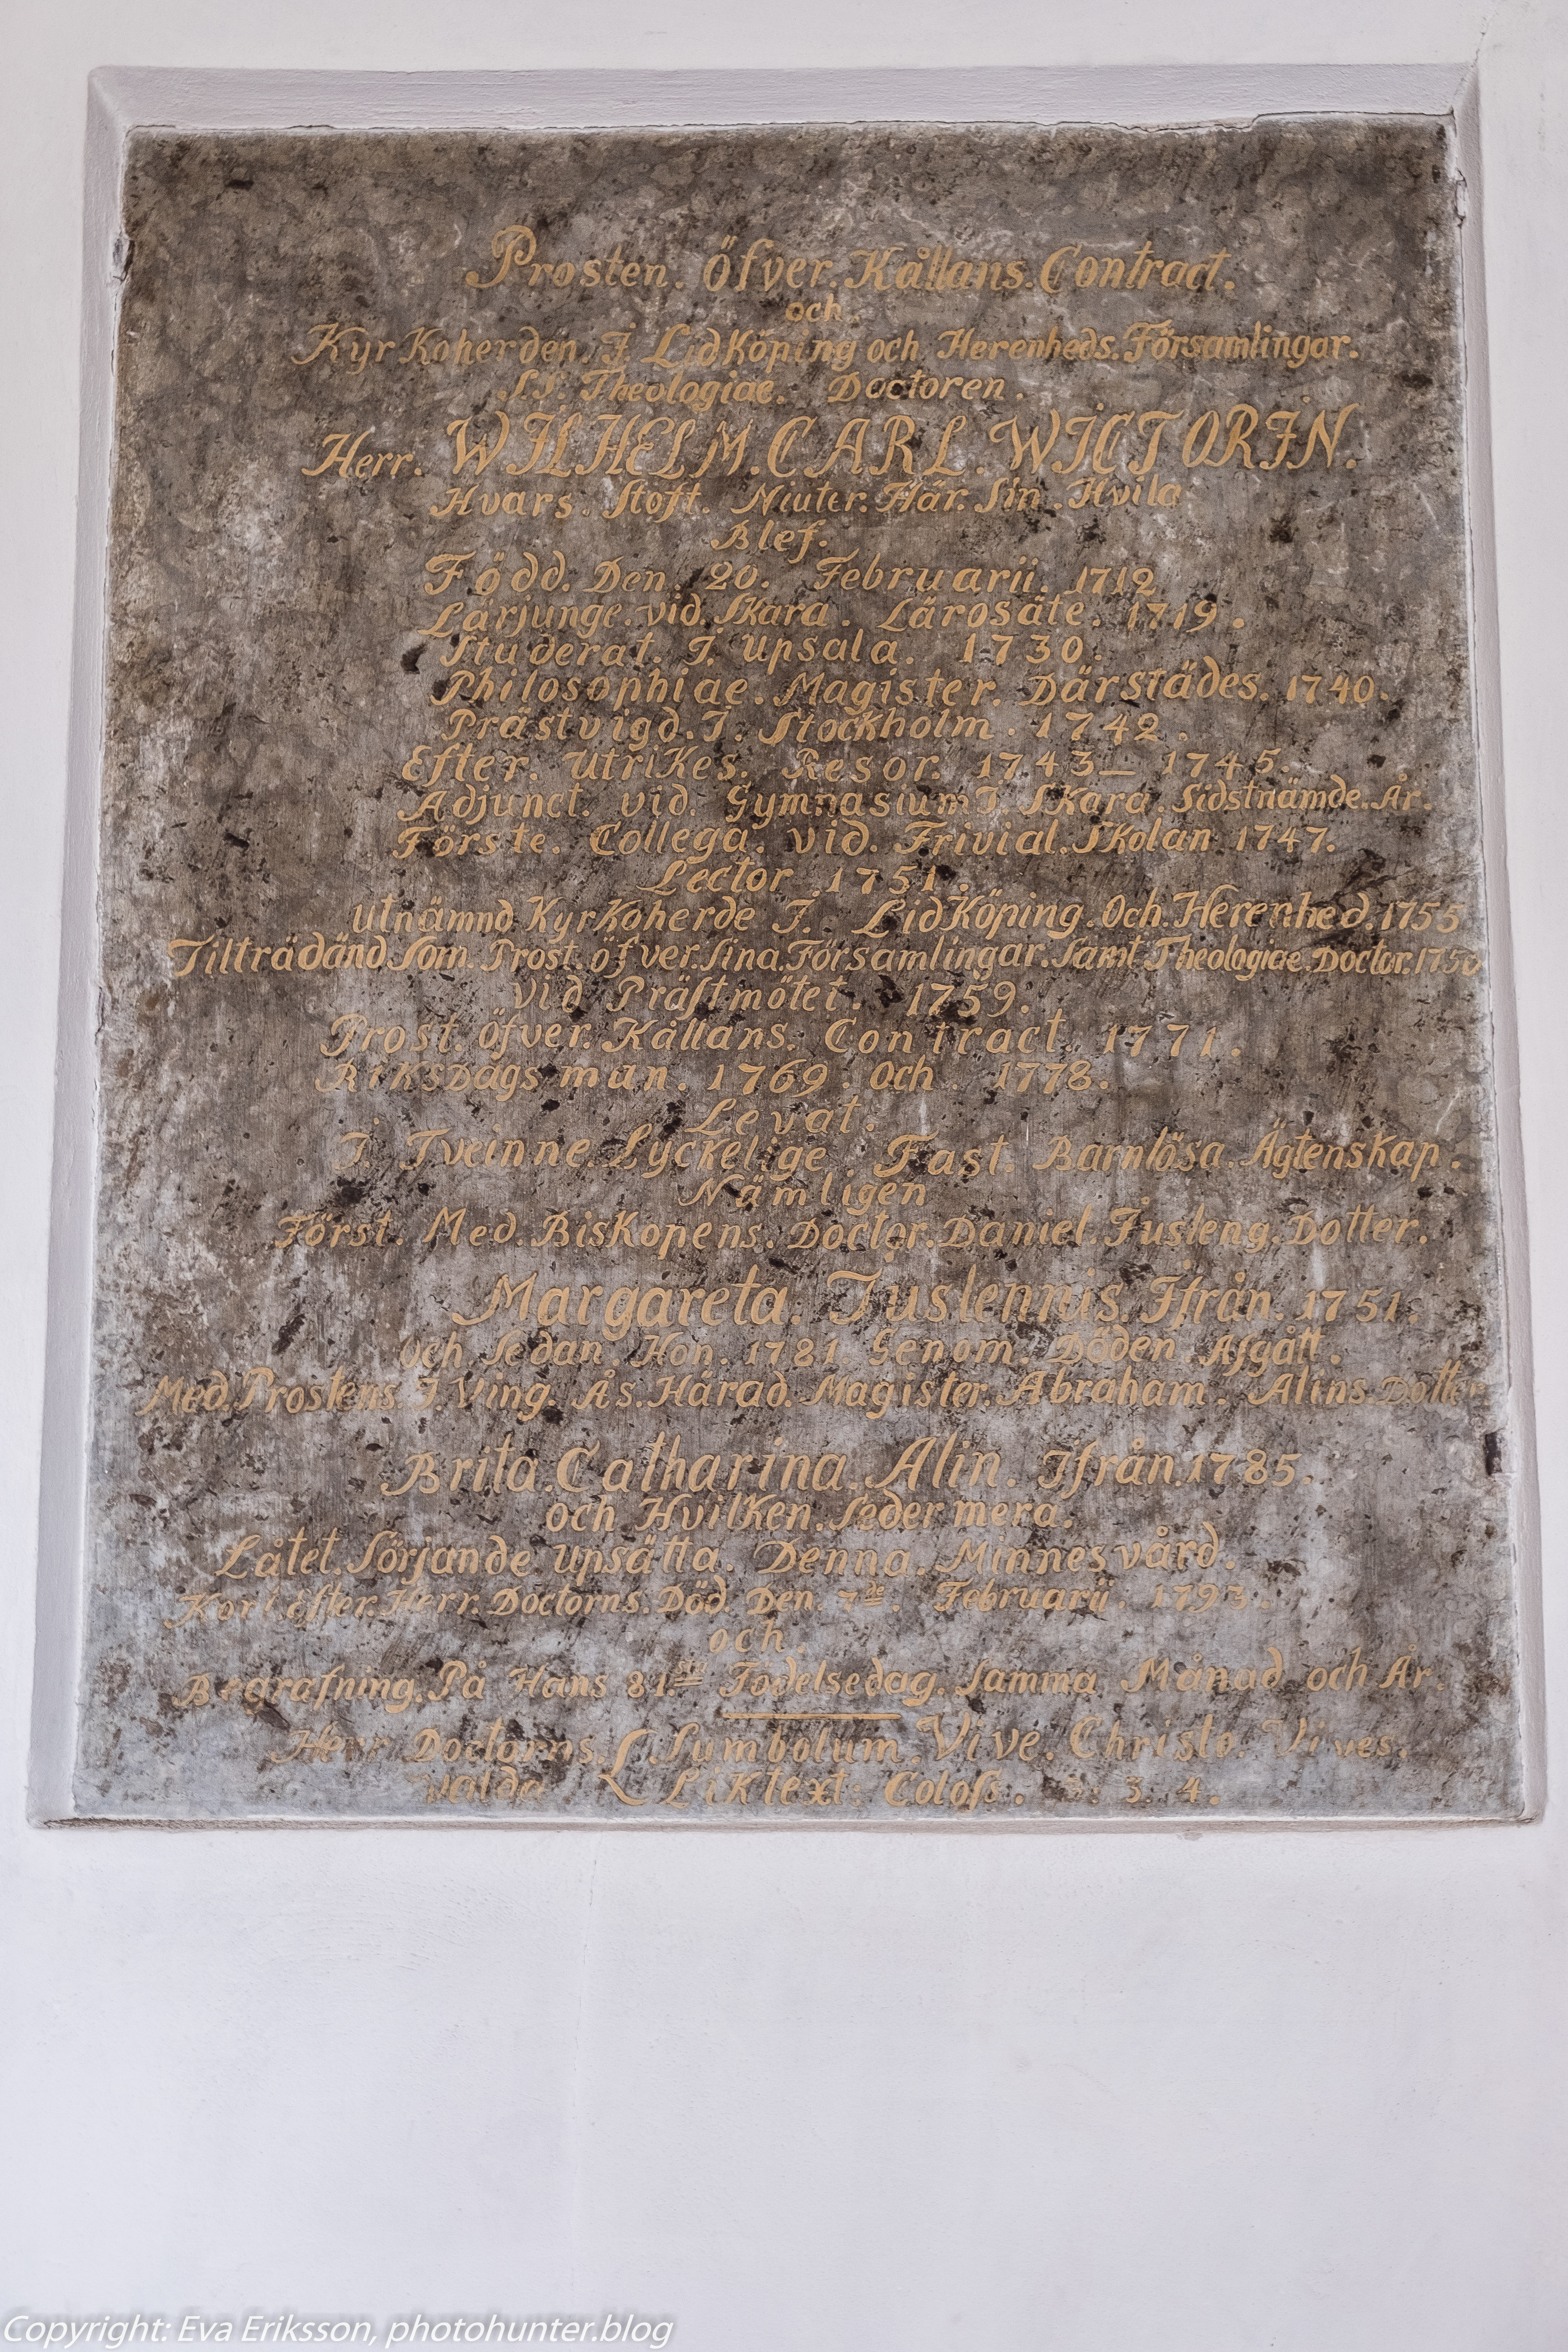 Prosten. öfver. Kållans. Contract.
och.
KyrKoherden. I. LidKöping och Herenheds. Församlingar.
S.S. Theologiae. Doctoren.
Herr. WILHELM. CARL. WICTORIN.
Hvars. Stoft. Niuter. Här. Sin. Hvila
Blef.
Född. Den. 20. Februarii. 1712
Lärjunge. vid. SKara. Lärosäte. 1719.
Studerat. I. upsala. 1730.
Philosophiae. Magister. Därstädes. 1740.
Prästvigd. I. Stockholm. 1742.
Efter. utriKes. Resor. 1743_ 1745.
Adjunct. vid. Gymnasium I SKara. Sidstnämde. År.
Förste. Collega. vid. Trivial. SKolan 1747.
Lector. 1751.
utnämnd KyrKoherde I. LidKöping. Och. Herenhed. 1755
Tilträdänd Som. Prost. öfver. Sina. Församlingar. Samt. Theologiae. Doctor.
vid Präſtmötet. 1759.
Prost. öfver. Kållans. Contract. 1771.
RiKsDags man. 1769. och. 1778.
Levat.
I. Tveinne. LycKelige. Fast. Barnlösa. ÄgtensKap.
Nämligen
Först. Med. BisKopens. Doctor. Daniel. Jusleng. Dotter.
Margareta. Juslennis. Ifrån. 1751.
och Sedan. Hon. 1781. Genom. Döden Afgått.
Med. Prostens. I. Ving. Ås. Härad. Magister. Abraham. Alins. Dotter
Brita. Catharina. Alin. Ifrån. 1785.
och HvilKen. Seder mera.
Låtet. Sörjande upsätta. Denna. Minnesvård.
Kort. Efter. Herr. Doctorns. Död. Den. 7de. Februarii. 1793.
och.
Begrafning. På Hans 81.sta Födelsedag. Samma Månad och År.
Herr Doctorns. Sumbolum. Vive. Christo. Vives.
valde LiKtext: Coloſs. 3. 3. 4.
Copyright: Eva Eriksson, photohunter.blog